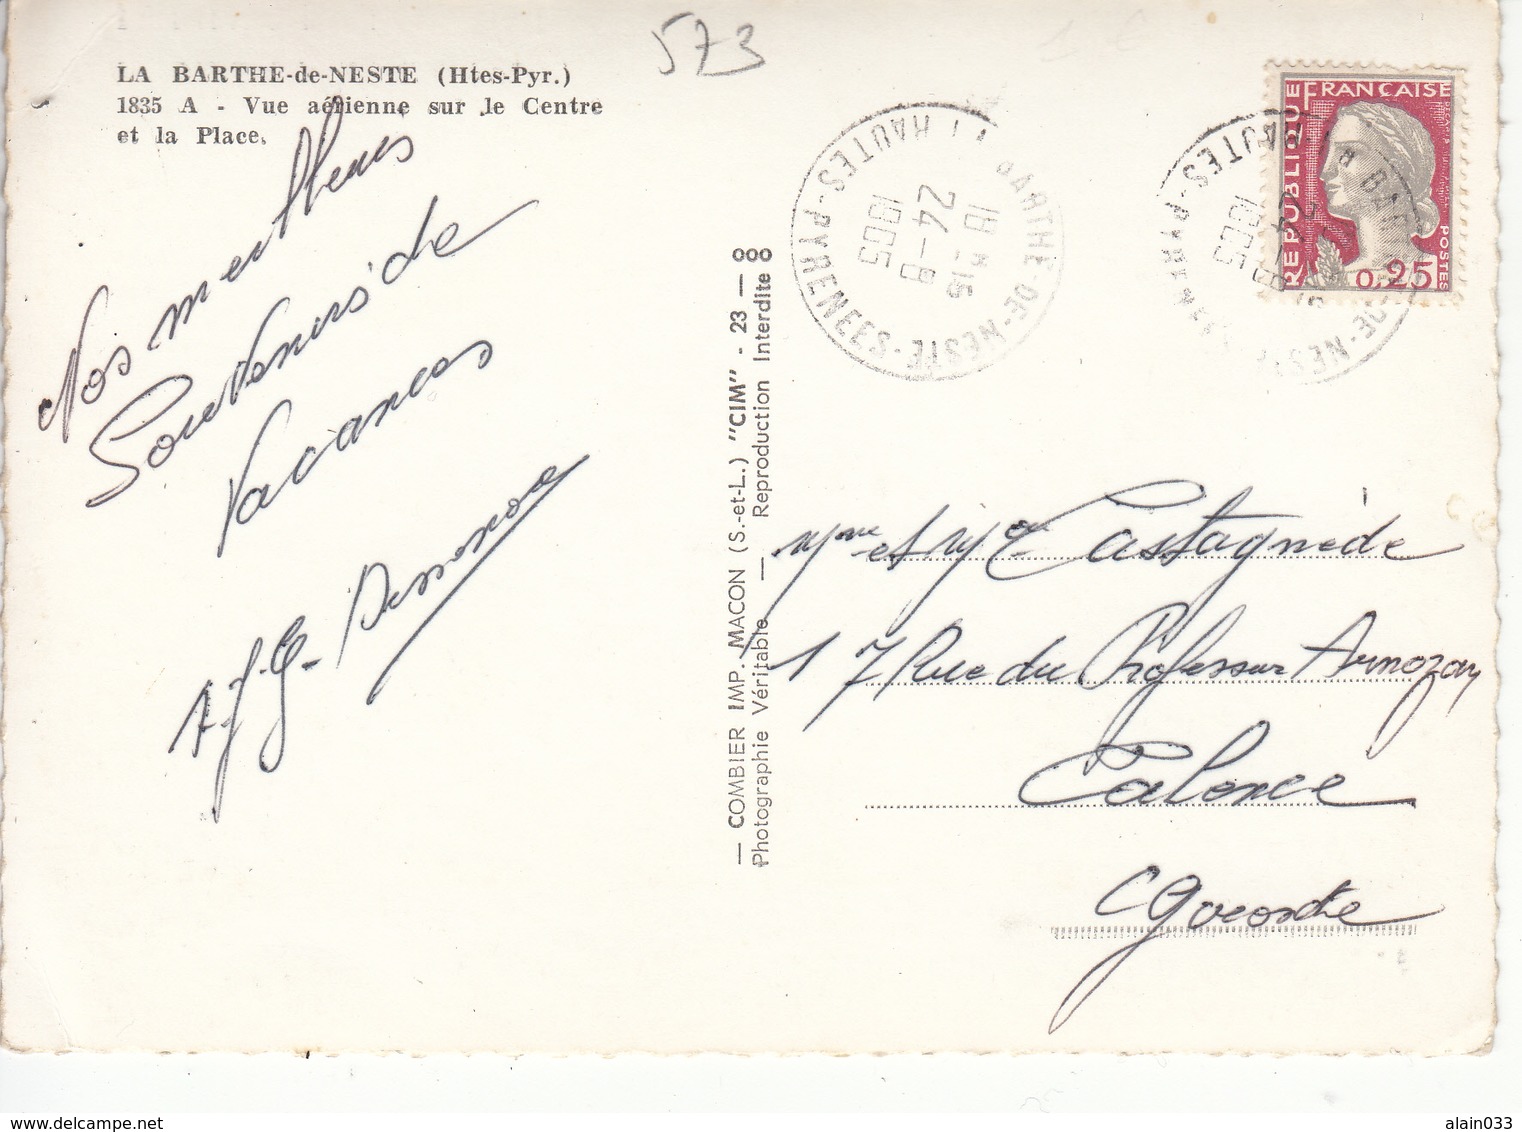 573
LA BARTHE-de-NESTE (Htes-Pyr.)
1835 A - Vue aérienne sur le Centre
et la Place.
Nos meilleurs
Souvenirs de
Vacances
— COMBIER IMP. MACON (S.-et-L.) "CIM" - 23 —
Photographie Véritable — Reproduction Interdite
LA BARTHE-DE-NESTE - HAUTES-PYRENEES
18 H 15
24 -8
1965
REPUBLIQUE FRANCAISE
POSTES
0,25
Mme et Mr Castagnède
17 Rue du Professeur Arnozan
Talence
Gironde
alain033